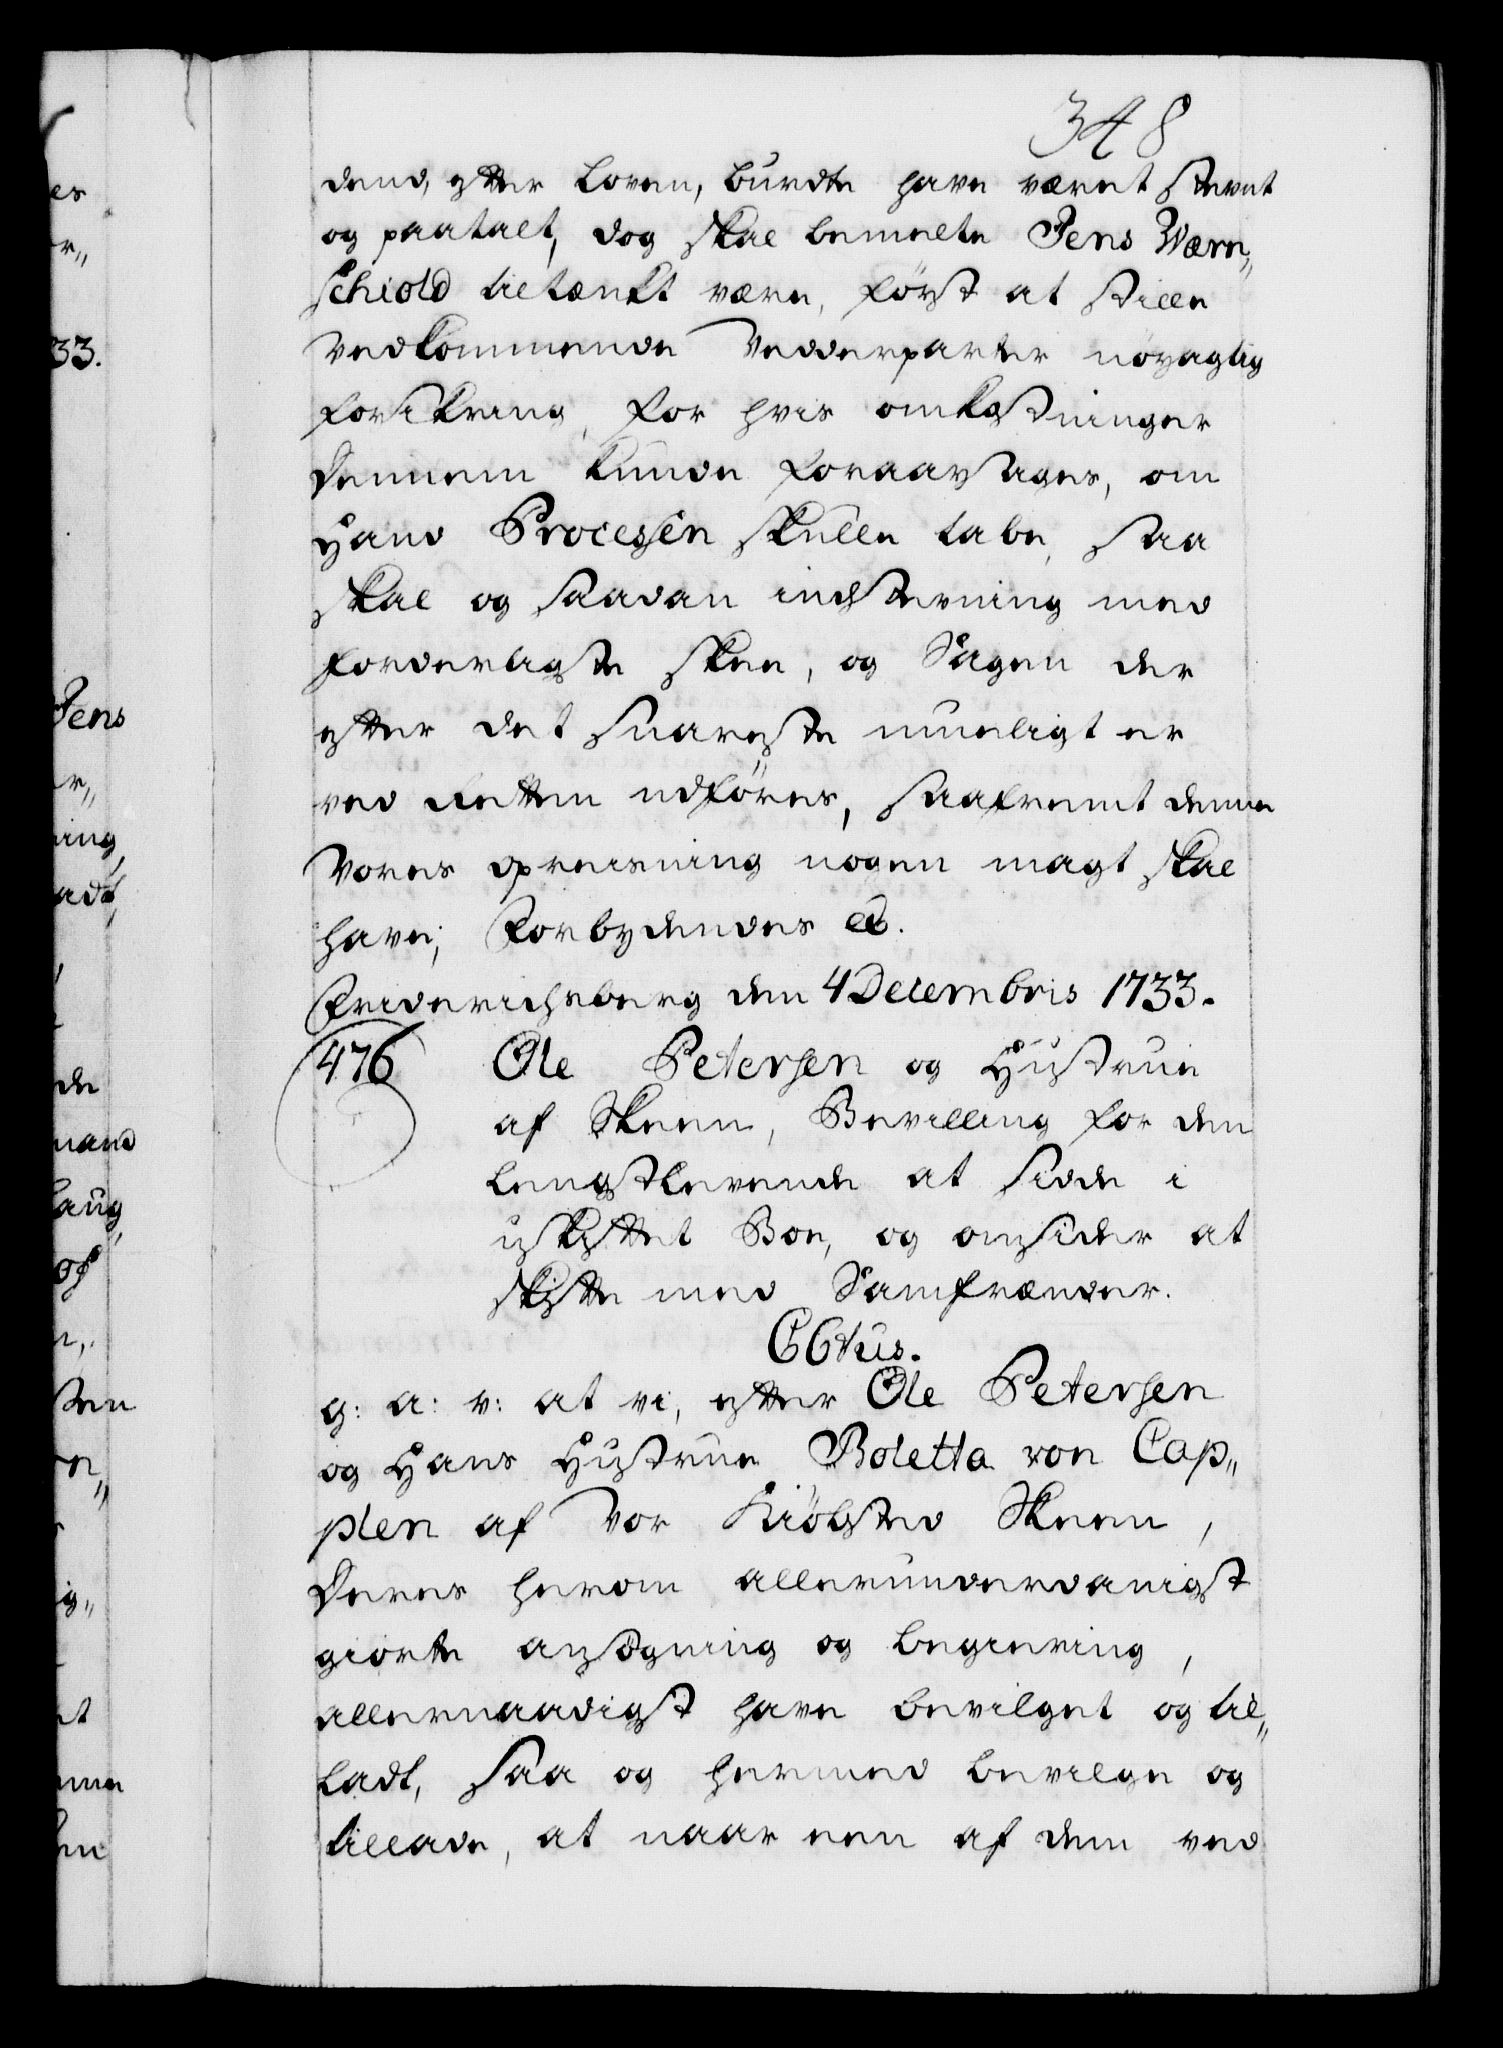 348
dend, efter Loven, burdte have været stevnt
og paatalt, dog skal bemelte Jens Wærn„
schiold tiltænkt være, først at stille
vedkommende Vedderparter nöyagtig
forsikring, for hvis omkostninger
Dennem kunde foraarsages, om
Hand Processen skulle tabe, saa
skal og saadan indstevning med
forderligste skee, og Sagen der
efter det snareste mueligt er
ved Retten udföres, saafremt denne
Vores opreisning nogen magt skal
have; Forbydendes &c.
Friderichsberg den 4 Decembris 1733.
476 Ole Petersen og Hustrue
af Skeen, Bevilling for den
lengstlevende at sidde i
uskiftet Boe, og omsider at
skifte med Samfrænder.
C6tus.
g: a: v: at vi, efter Ole Petersen
og Hans Hustrue Boletta von Cap„
plen af Vor Kiöbsted Skeen,
Deres herom allerunderdanigst
giorte ansögning og begiering,
allernaadigst have bevilget og til„
ladt, saa og hermed bevilge og
tillade, at naar een af dem ved